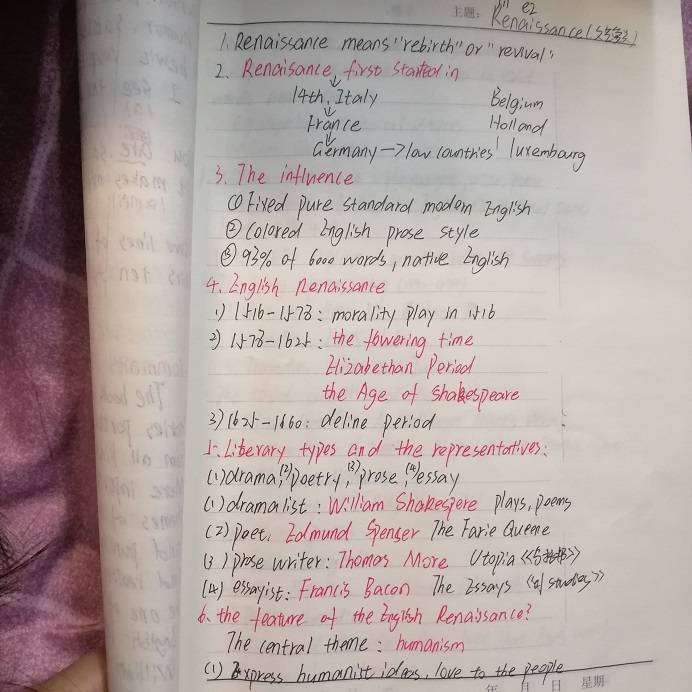 主题: Renaissance
1. Renaissance means "rebirth" or "revival"
2. Renaisance first started in
14th, Italy Belgium
France Holland
Germany → low countries luxembourg
3. The influence
① Fixed pure standard modern English
② Colored English prose style
③ 93% of 6000 words, native English
4. English Renaissance
1) 1516-1578: morality play in 1516
2) 1578-1625: the flowering time
Elizabethan Period
the Age of Shakespeare
3) 1625-1660: deline period
5. Literary types and the representatives:
(1) drama, (2) poetry, (3) prose, (4) essay
(1) dramalist: William Shakespere plays, poems
(2) poet. Edmund Spenser The Farie Queene
(3) prose writer: Thomas More Utopia
(4) essayist: Francis Bacon The Essays studies
6. the feature of the English Renaissance?
The central theme: humanism
(1) Express humanist ideas, love to the people
年 月 日 星期